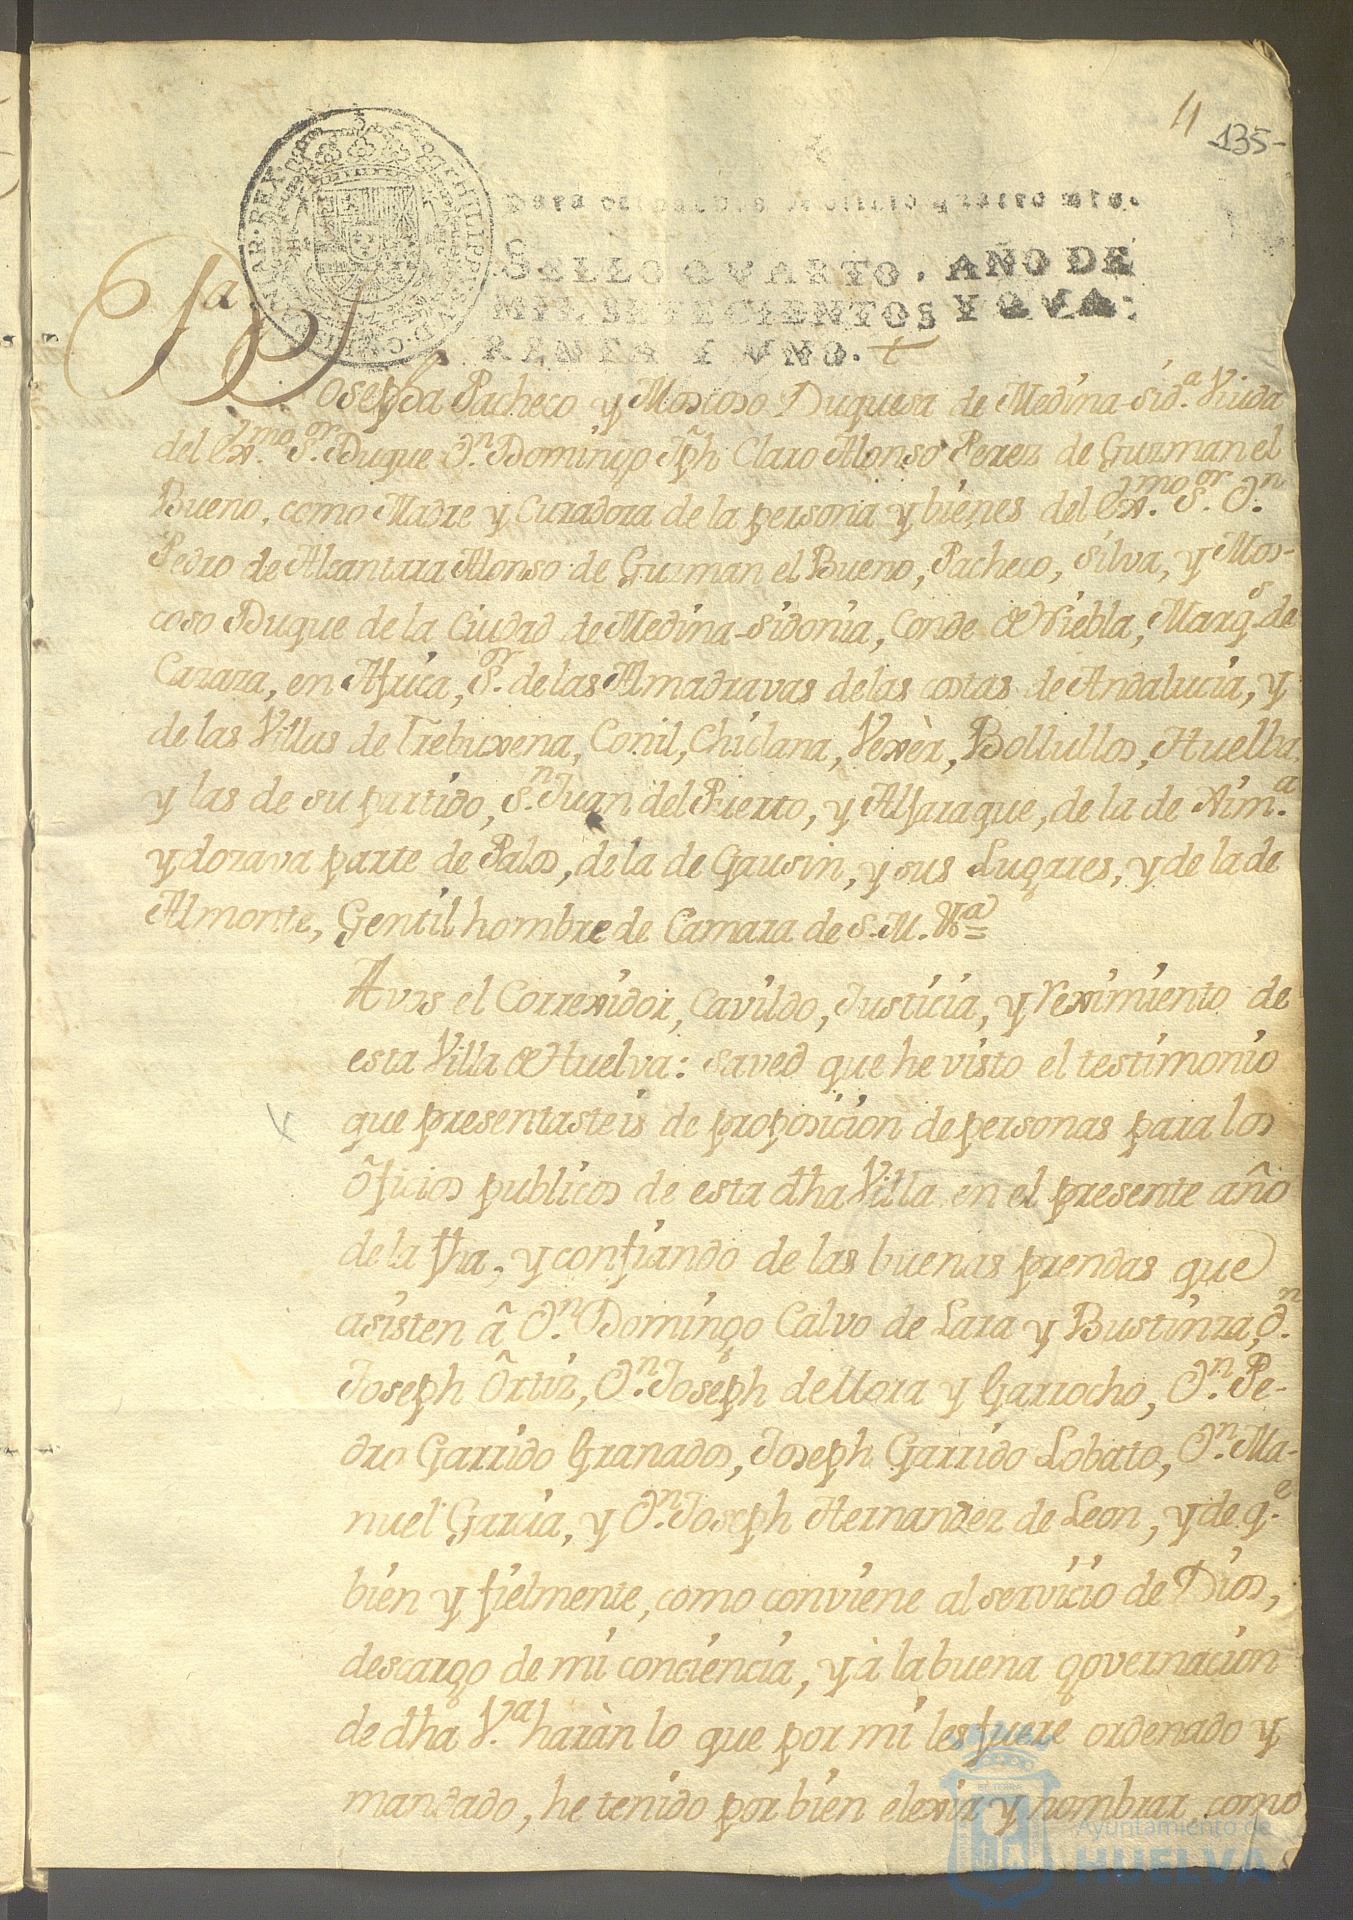 11
135-
Para despachos de oficio quatro mrs.
SELLO QVARTO, AÑO DE
MIL SETECIENTOS Y QVA:
RENTA Y VNO.
Da. Josepha Pacheco y Moscoso Duquesa de Medina Sid.a Viuda
del Ex.mo S.or Duque D.n Domingo Jph Claro Alonso Perez de Guzman el
Bueno, como Madre y Curadora de la persona y bienes del Ex.mo S.or D.n
Pedro de Alcantara Alonso de Guzman el Bueno, Pacheco, Silva, y Mos-
coso Duque de la Ciudad de Medina-Sidonia, Conde de Niebla, Marq.s de
Cazaza, en Africa, S.or de las Almadravas de las costas de Andalucia, y
de las Villas de Trebuxena, Conil, Chiclana, Vexèr, Bollullos, Huelba,
y las de su partido, S.n Juan del Puerto, y Alfaraque, de la de Xim.a
y dozava parte de Palos, de la de Gausin, y sus Lugares, y de la de
Almonte, Gentil hombre de Camara de S. M. &.a =
A vos el Correxidor, Cavildo, Justicia, y reximiento de
esta Villa de Huelva: saved que he visto el testimonio
que presentasteis de proposicion de personas para los
oficios publicos de esta dha Villa en el presente año
de la fha, y confiando de las buenas prendas que
asisten â D.n Domingo Calvo de Lara y Bustinza, D.n
Joseph Ortiz, D.n Joseph de Mora y Garrocho, D.n Pe-
dro Garrido Granados, Joseph Garrido Lobato, D.n Ma-
nuel Garcia, y D.n Joseph Hernandez de Leon, y de q.e
bien y fielmente, como conviene al servicio de Dios,
descargo de mi conciencia, y à la buena governacion
de dha V.a haràn lo que por mi les fuere ordenado y
mandado, he tenido por bien elexir y nombrar como
Ayuntamiento de
HUELVA